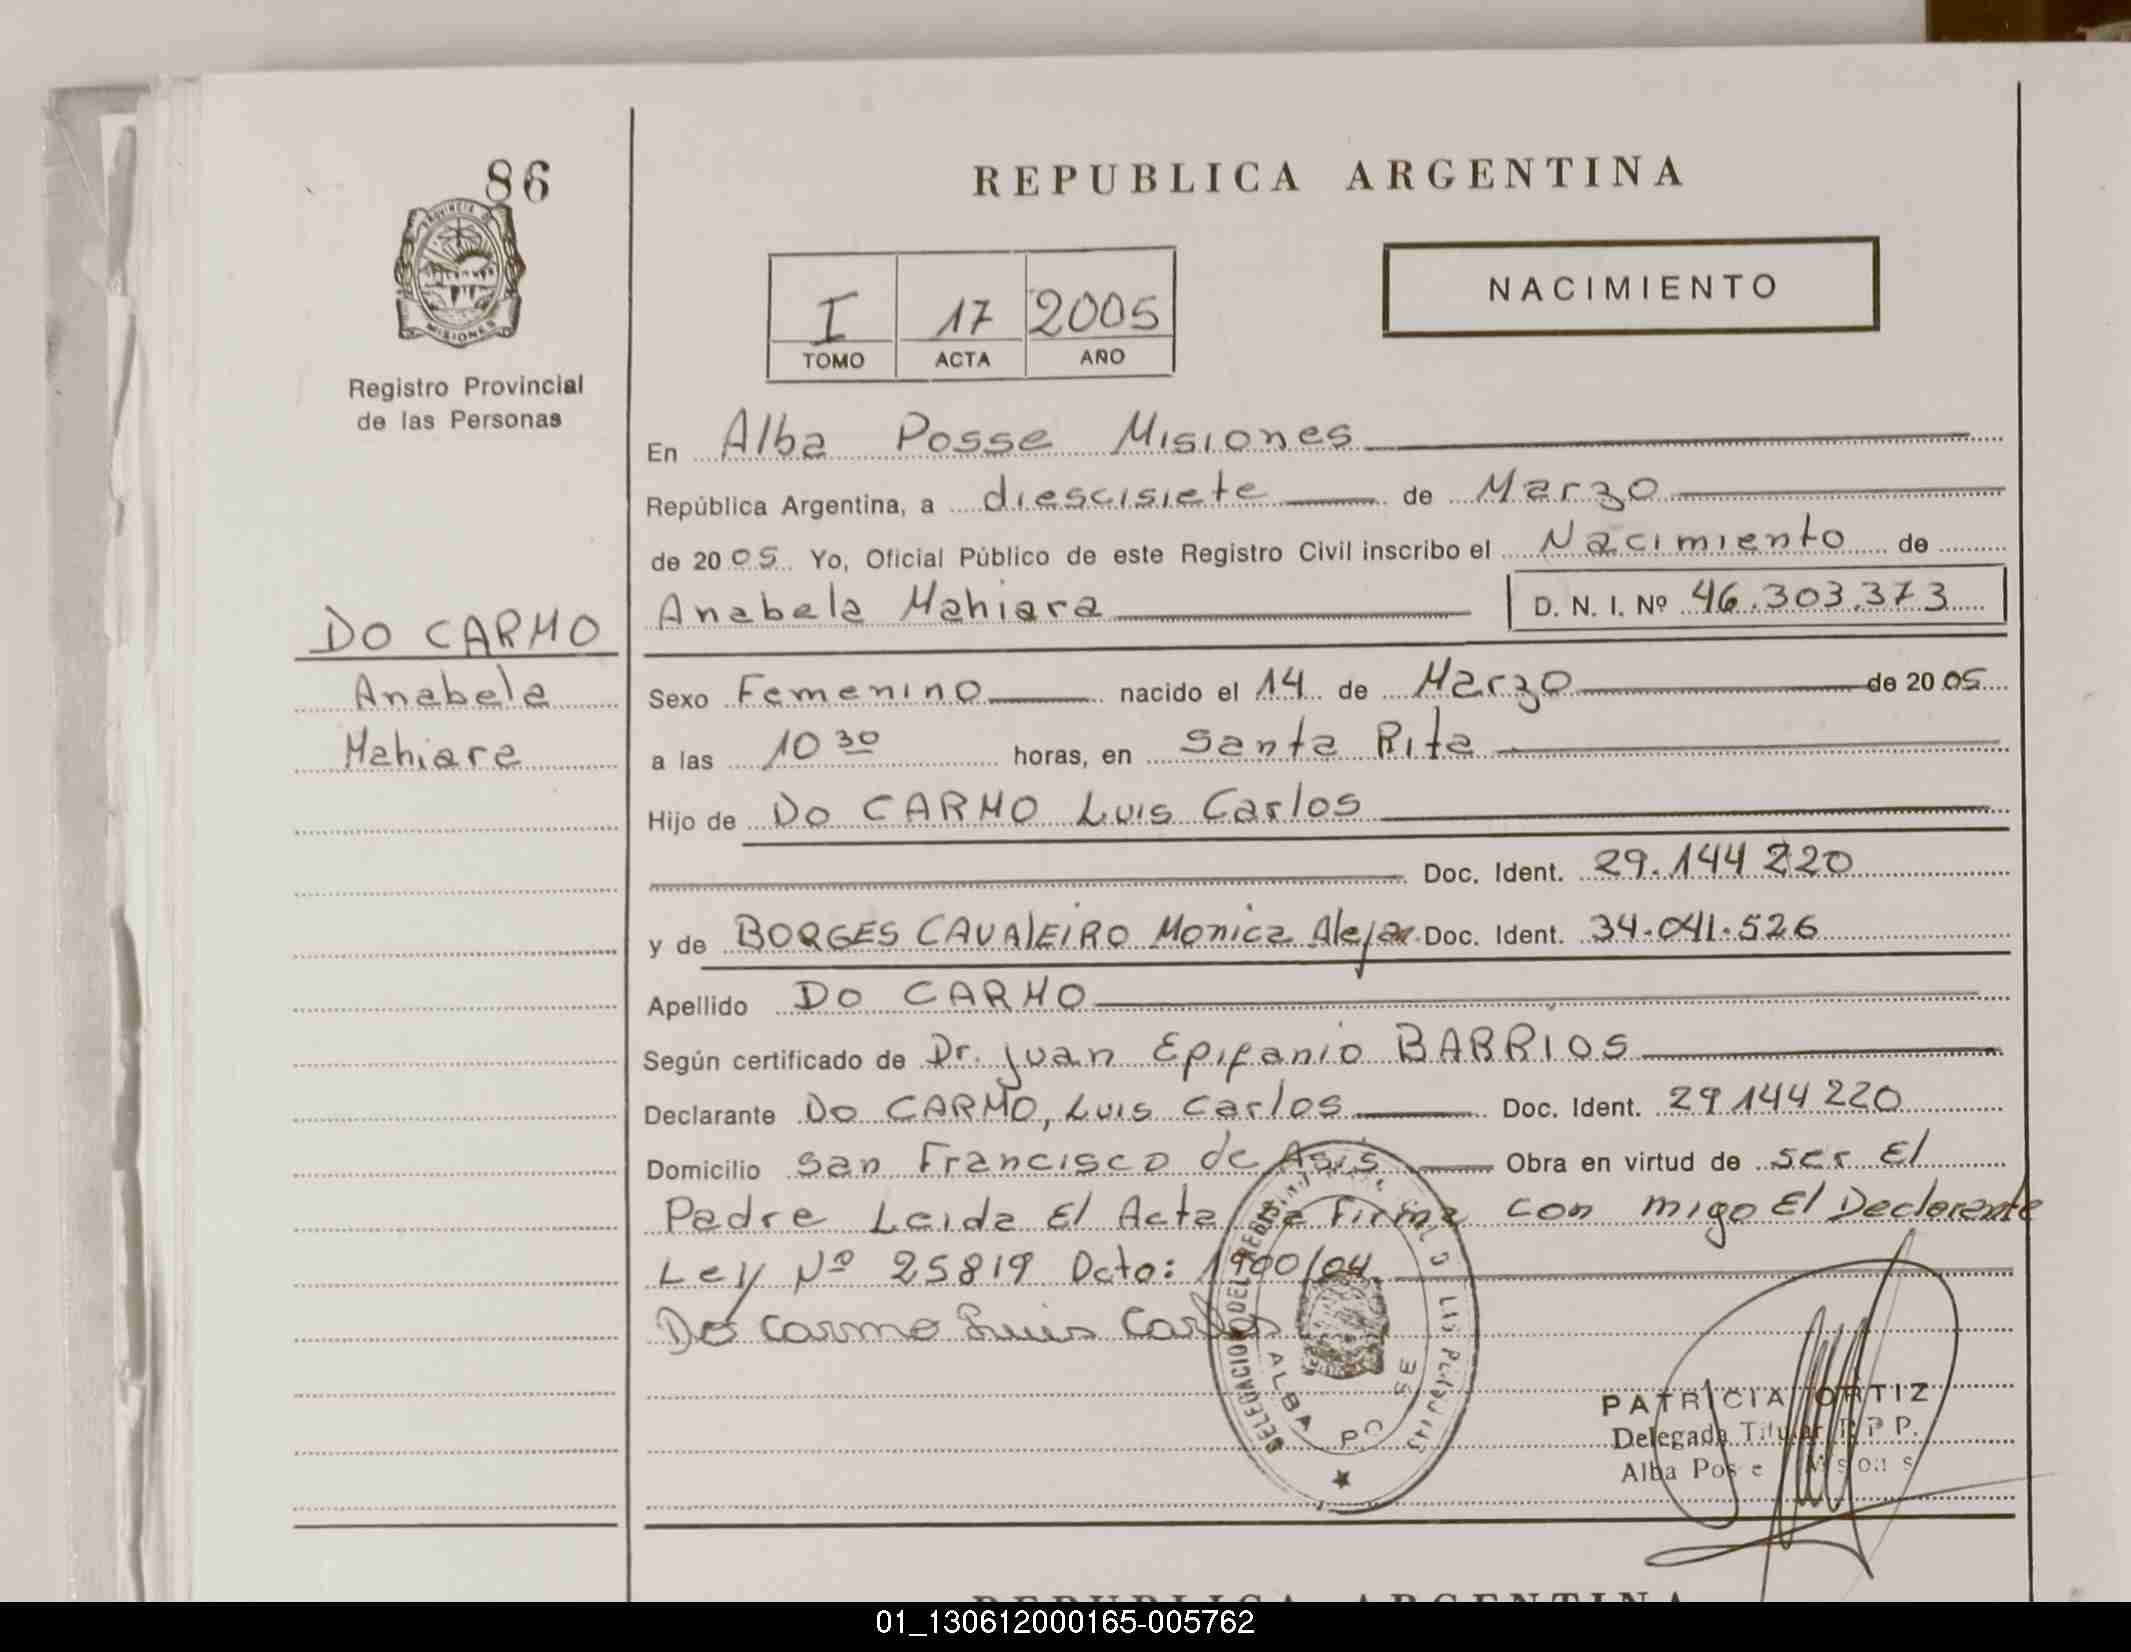 86
PROVINCIA DE
MISIONES
Registro Provincial
de las Personas
DO CARMO
Anabela
Mahiara
REPUBLICA ARGENTINA
NACIMIENTO
I 17 2005
TOMO ACTA AÑO
En Alba Posse Misiones
República Argentina, a diescisiete de Marzo
de 2005 Yo, Oficial Público de este Registro Civil inscribo el Nacimiento de
Anabela Mahiara D. N. I. Nº 46.303.373
Sexo Femenino nacido el 14 de Marzo de 2005
a las 10 30 horas, en Santa Rita
Hijo de Do CARMO Luis Carlos
Doc. Ident. 29.144 220
y de BORGES CAVALEIRO Monica Alejan. Doc. Ident. 34.041.526
Apellido DO CARMO
Según certificado de Dr. Juan Epifanio BARRIOS
Declarante Do CARMO, Luis Carlos Doc. Ident. 29 144 220
Domicilio San Francisco de Asis Obra en virtud de ser El
Padre Leida El Acta la Firma con migo El Declarante
Ley Nº 25819 Dcto: 1900/04
Do Carmo Luis Carlos
DELEGACION DEL REGISTRO
ALBA POSSE
PATRICIA ORTIZ
Delegada Titular R P P.
Alba Posse Misiones
REPUBLICA ARGENTINA
01_130612000165-005762